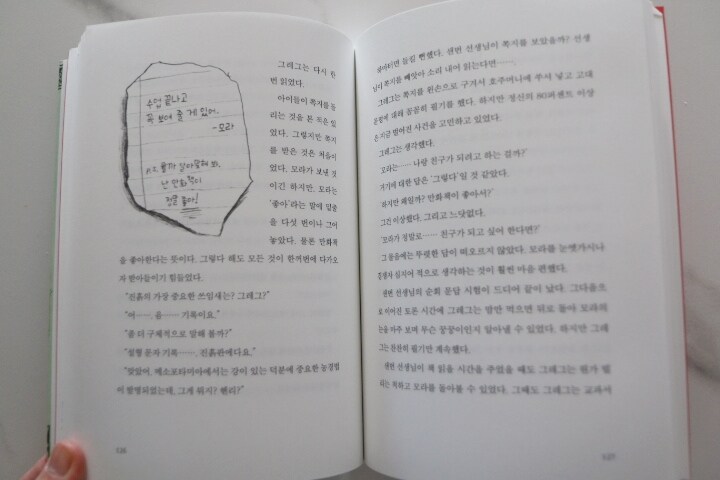 수업 끝나고
꼭 보여 줄 게 있어.
-모라
난 만화책이
정말 좋아!
그레그는 다시 한
번 읽었다.
아이들이 쪽지를 돌
리는 것을 본 적은 있
었다. 그렇지만 쪽지
를 받은 것은 처음이
었다. 모라가 보낸 것
이긴 하지만. 모라는
'좋아'라는 말에 밑줄
을 다섯 번이나 그어
놓았다. 물론 만화책
을 좋아한다는 뜻이다. 그렇다 해도 모든 것이 한꺼번에 다가오
자 받아들이기 힘들었다.
"진흙의 가장 중요한 쓰임새는? 그레그?"
"어…… 음…… 기록이요."
"좀 더 구체적으로 말해 볼까?"
"설형 문자 기록……, 진흙판에다요."
"맞았어. 메소포타미아에서는 강이 있는 덕분에 중요한 농경법
이 발명되었는데, 그게 뭐지? 헨리?"
님이 쪽지를 빼앗아 소리 내어 읽는다면…….
그레그는 쪽지를 왼손으로 구겨서 호주머니에 쑤셔 넣고 고대
문명에 대해 꼼꼼히 필기를 했다. 하지만 정신의 80퍼센트 이상
은 지금 벌어진 사건을 고민하고 있었다.
그레그는 생각했다.
'모라는…… 나랑 친구가 되려고 하는 걸까?'
자기에 대한 답은 '그렇다'일 것 같았다.
'하지만 왜일까? 만화책이 좋아서?'
그건 이상했다. 그리고 느닷없다.
'모라가 정말로…… 친구가 되고 싶어 한다면?'
그 물음에는 뚜렷한 답이 떠오르지 않았다. 모라를 눈엣가시나
경쟁자 심지어 적으로 생각하는 것이 훨씬 마음 편했다.
샌번 선생님의 순회 문답 시험이 드디어 끝이 났다. 그다음으
로 이어진 토론 시간에 그레그는 맘만 먹으면 뒤로 돌아 모라의
눈을 마주 보며 무슨 꿍꿍이인지 알아낼 수 있었다. 하지만 그레
그는 찬찬히 필기만 계속했다.
샌번 선생님이 책 읽을 시간을 주었을 때도 그레그는 뭔가 빌
리는 척하고 모라를 돌아볼 수 있었다. 그래도 그레그는 교과서